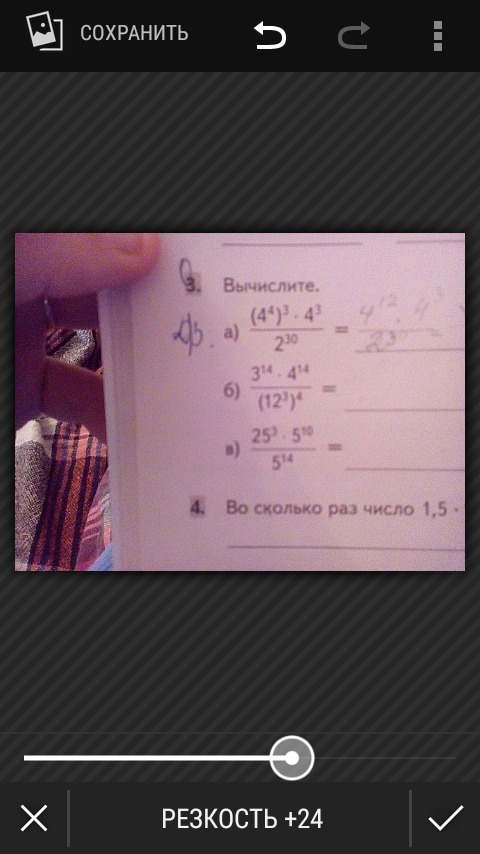 СОХРАНИТЬ
3. Вычислите.
а) (4⁴)³ · 4³ / 2³⁰ = 4¹² · 4³ / 2³⁰
б) 3¹⁴ · 4¹⁴ / (12³)⁴ =
в) 25³ · 5¹⁰ / 5¹⁴ =
4. Во сколько раз число 1,5 ·
РЕЗКОСТЬ +24